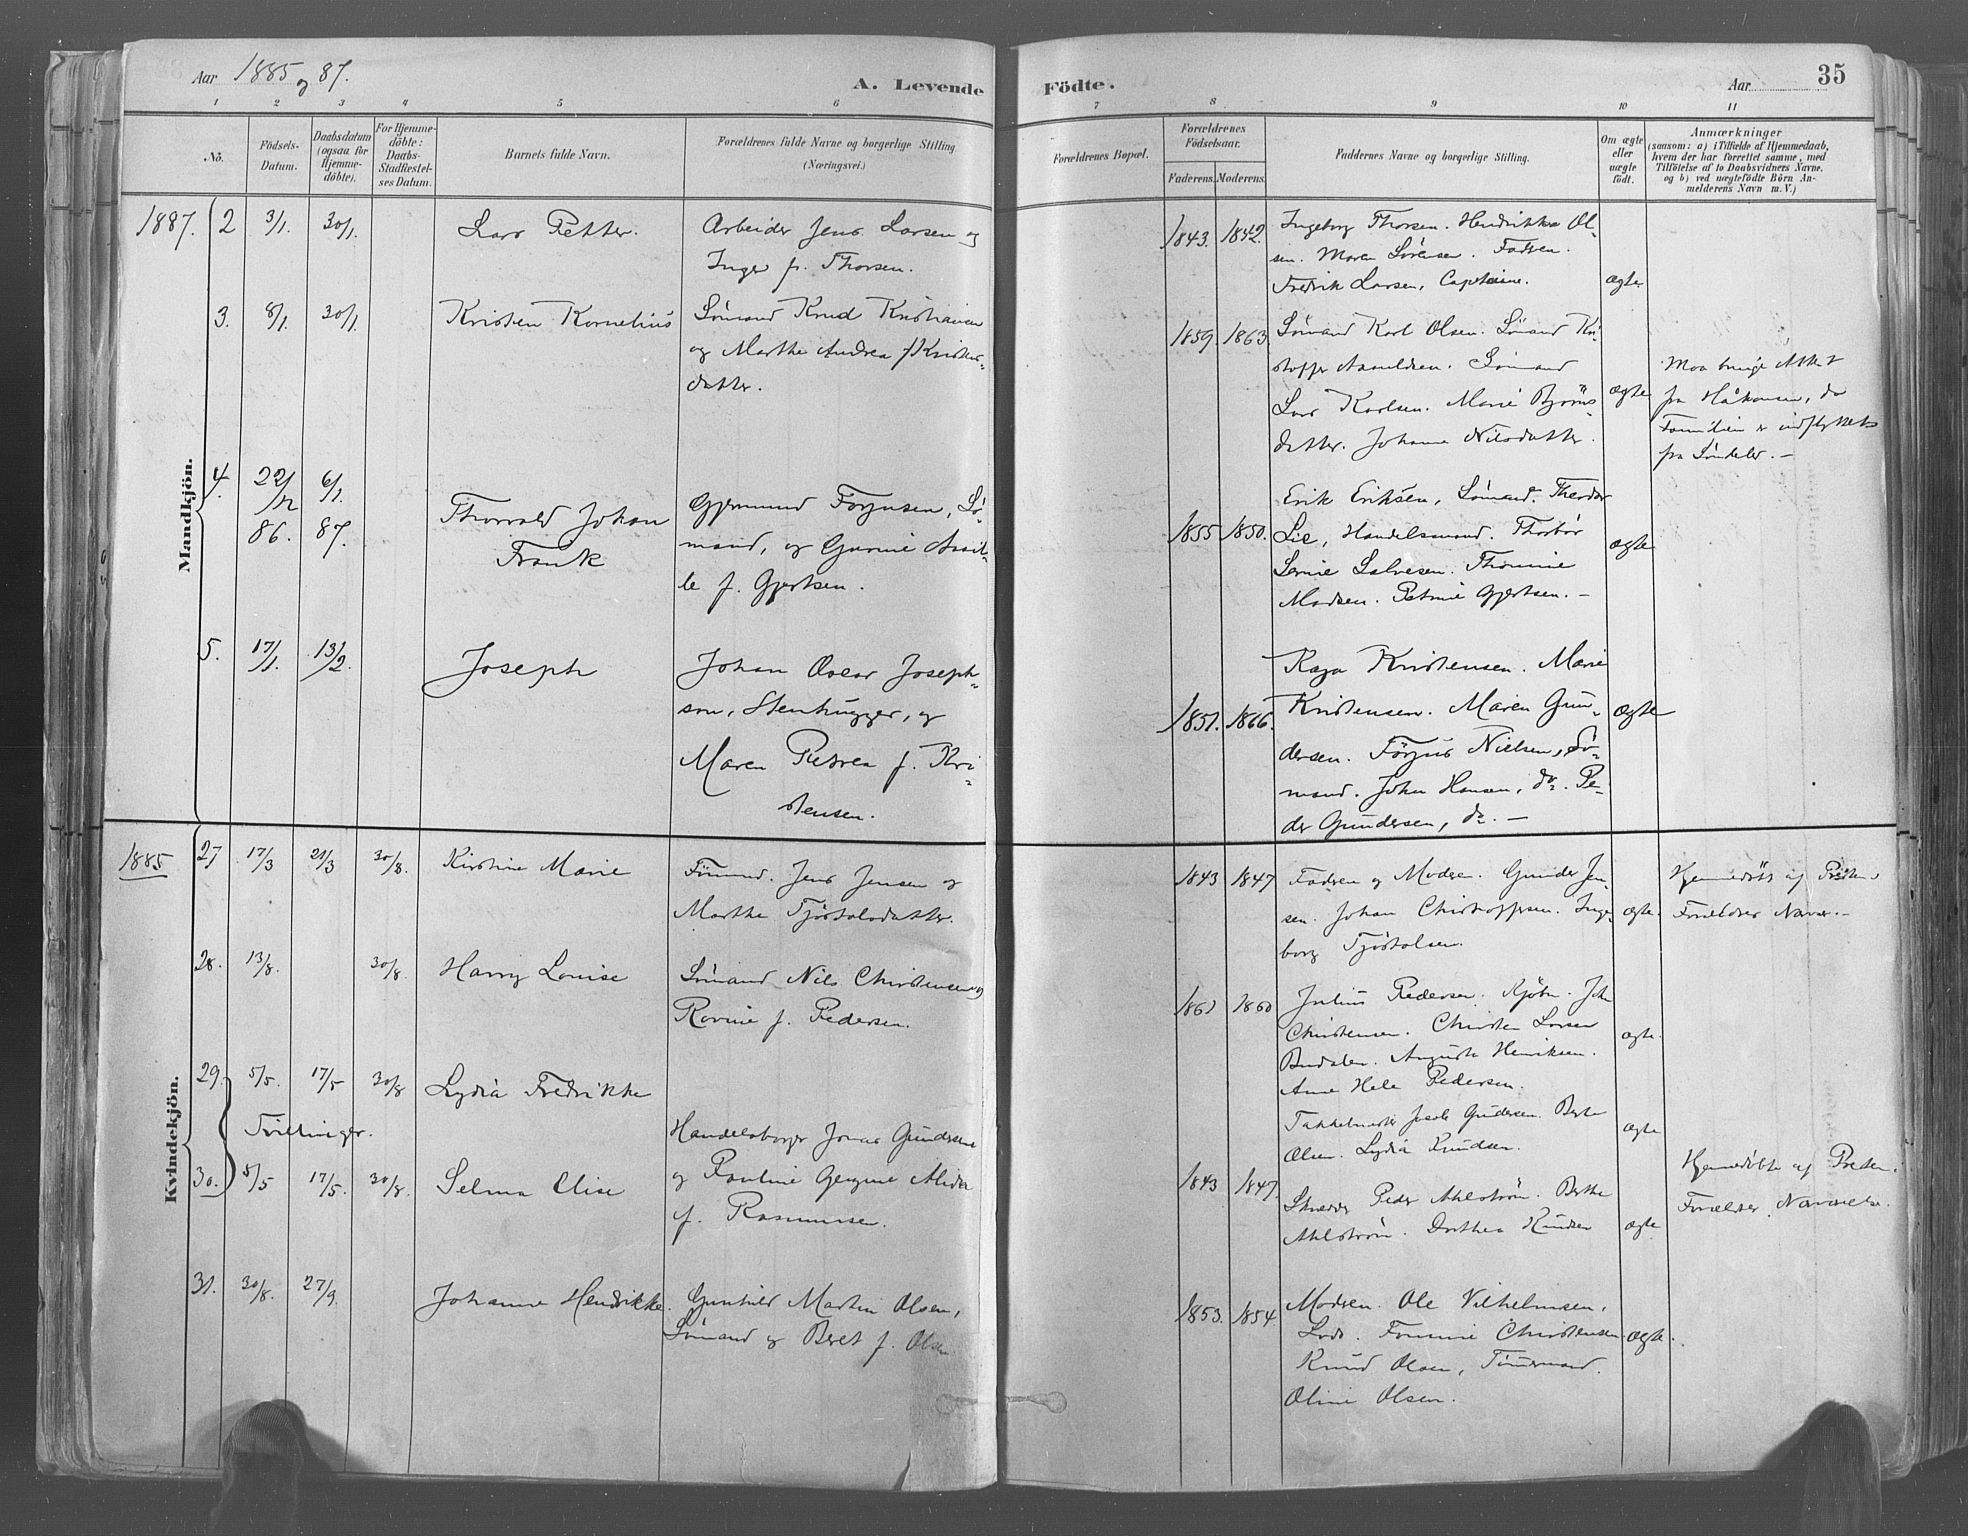 Aar 1885 og 87.
A. Levende Födte.
Aar
35
1 2 3 4 5 6 7 8 9 10 11
No.
Födsels-Datum.
Daabsdatum (ogsaa for Hjemme-döbte).
For Hjemme-döbte: Daabs-Stadfæstel-ses Datum.
Barnets fulde Navn.
Forældrenes fulde Navne og borgerlige Stilling (Næringsvei.)
Forældrenes Bopæl.
Forældrenes Födselsaar.
Faderens. Moderens.
Faddernes Navne og borgerlige Stilling.
Om ægte eller uægte födt.
Anmærkninger
(saasom: a) i Tilfælde af Hjemmedaab,
hvem der har forrettet samme, med
Tilföielse af to Daabsvidners Navne,
og b) ved uægtefödte Börn An-
melderens Navn m. V.)
Mandkjön.
1887. 2 3/1. 30/1. Lars Petter.
Arbeider Jens Larsen og
Inger f. Thorsen.
1843. 1852.
Ingeborg Thorsen. Hendrikke Ol-
sen. Maren Sörensen. Fadren.
Fredrik Larsen, Captaine.
ægte
3. 8/1. 30/1. Kristen Kornelius
Sömand Knud Kristiansen
og Marthe Andrea f Kristens-
datter.
1859. 1863.
Sömand Karl Olsen. Sömand Kri-
stoffer Sömand
Lars Karlsen. Marie Björns-
datter. Johanne Nilsdatter.
ægte
Maa bringe Attest
fra Håkansen, da
Familien er indflyttet
fra Söndeled. –
4. 22/12 86. 6/1. 87. Thorvald Johan
Frank
Gjermund Förgusen, Sö-
mand, og Gurine
f. Gjertsen.
1855 1850.
Erik Eriksen, Sömand. Theodor
Lie, Handelsmand. Thorbör
Salvesen. Thomine
Madsen. Petrine Gjertsen. –
ægte
5. 17/1. 13/2. Joseph
Johan Oscar Joseph-
son, Stenhugger, og
Maren Petrea f. Kri-
stensen.
1851. 1866.
Kaja Kristensen. Marie
Kristensen. Maren Gun-
dersen. Förgus Nielsen, Sö-
mand. John Hansen, do. Pe-
der Gundersen, do. –
ægte
Kvindekjön.
1885 27 17/3 21/3 30/8. Kirstine Marie
Jens Jensen og
Marthe Tjöstolsdatter.
1843 1847
Fadren og Modren. Gunder Jen-
sen. Johan Christoffersen. Inge-
borg Tjöstolsen.
ægte.
Hjemmedöbt af Præsten i
Forældres Nærv. –
28. 13/8. 30/8. Harry Louise
Sömand Nils Christensen og
Rovine f. Pedersen.
1861 1860
Julius Pedersen. Kjöbm. John
Christensen. Christen Larsen
Budalen. Auguste Henriksen.
Anne Hele Pedersen.
ægte.
29. 5/5. 17/5 30/8 Lydia Fredrikke
Tvillinger.
Handelsborger Jonas Gundersen
og Pauline Alida
f. Rasmussen.
Jacob Gundersen. Berte
Olsen. Lydia Knudsen.
ægte
30. 5/5 17/5. 30/8. Selma Elise
1843 1847.
Skrædder Peder Ahlström. Berthe
Ahlström. Dorthea Knudsen
ægte
Hjemmedöbte af Præsten i
Forældres Nærværelse.
31. 30/8. 27/9. Johanne Hendrikke.
Gunhild Martin Olsen,
Sömand og Beret f. Olsen
1853. 1854
Modren. Ole Vilhelmsen,
Lods. Christensen
Knud Olsen, Tömmermand.
Oline Olsen.
ægte.